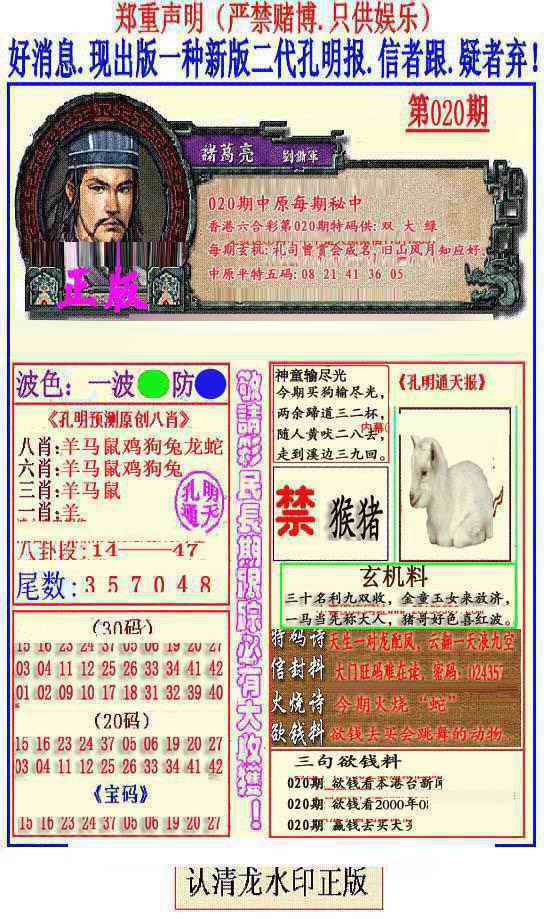 郑重声明（严禁赌博.只供娱乐）
好消息.现出版一种新版二代孔明报.信者跟.疑者弃!
第020期
諸葛亮
020期中原每期秘中
香港六合彩第020期特码供: 双 大 绿
每期玄机: 礼司曾资会成名,旧山风月知应好.
中原平特五码: 08 21 41 36 05
正版
波色：一波 防
《孔明预测原创八肖》
八肖:羊马鼠鸡狗兔龙蛇
六肖:羊马鼠鸡狗兔
三肖:羊马鼠
一肖:羊
孔明通天
八卦段:14——47
尾数:3 5 7 0 4 8
(30码)
15 16 23 24 37 05 06 19 20 27
03 04 11 12 25 26 33 34 41 42
01 02 09 10 17 18 31 32 39 40
(20码)
15 16 23 24 37 05 06 19 20 27
03 04 11 12 25 26 33 34 41 42
《宝码》
15 16 23 24 37 05 06 19 20 27
敬請彩民長期跟踪必有大收獲！
神童输尽光
今期买狗输尽光，
两余蹄道三二杯，
随人黄吠二八去，
走到溪边三九回。
内幕
《孔明通天报》
禁
猴猪
玄机料
三十名利九双收，金童玉女来救济，
一马当先称大人，猪哥好色喜红波。
特码诗 天生一对龙配凤，云翻一天液九空
信封料 大门旺码难在读，密码：024357
火烧诗 今期火烧“蛇”
欲钱料 欲钱去买会跳舞的动物。
三句欲钱料
020期 欲钱看本港台新闻
020期 欲钱看2000年0
020期 赢钱去买天
认清龙水印正版